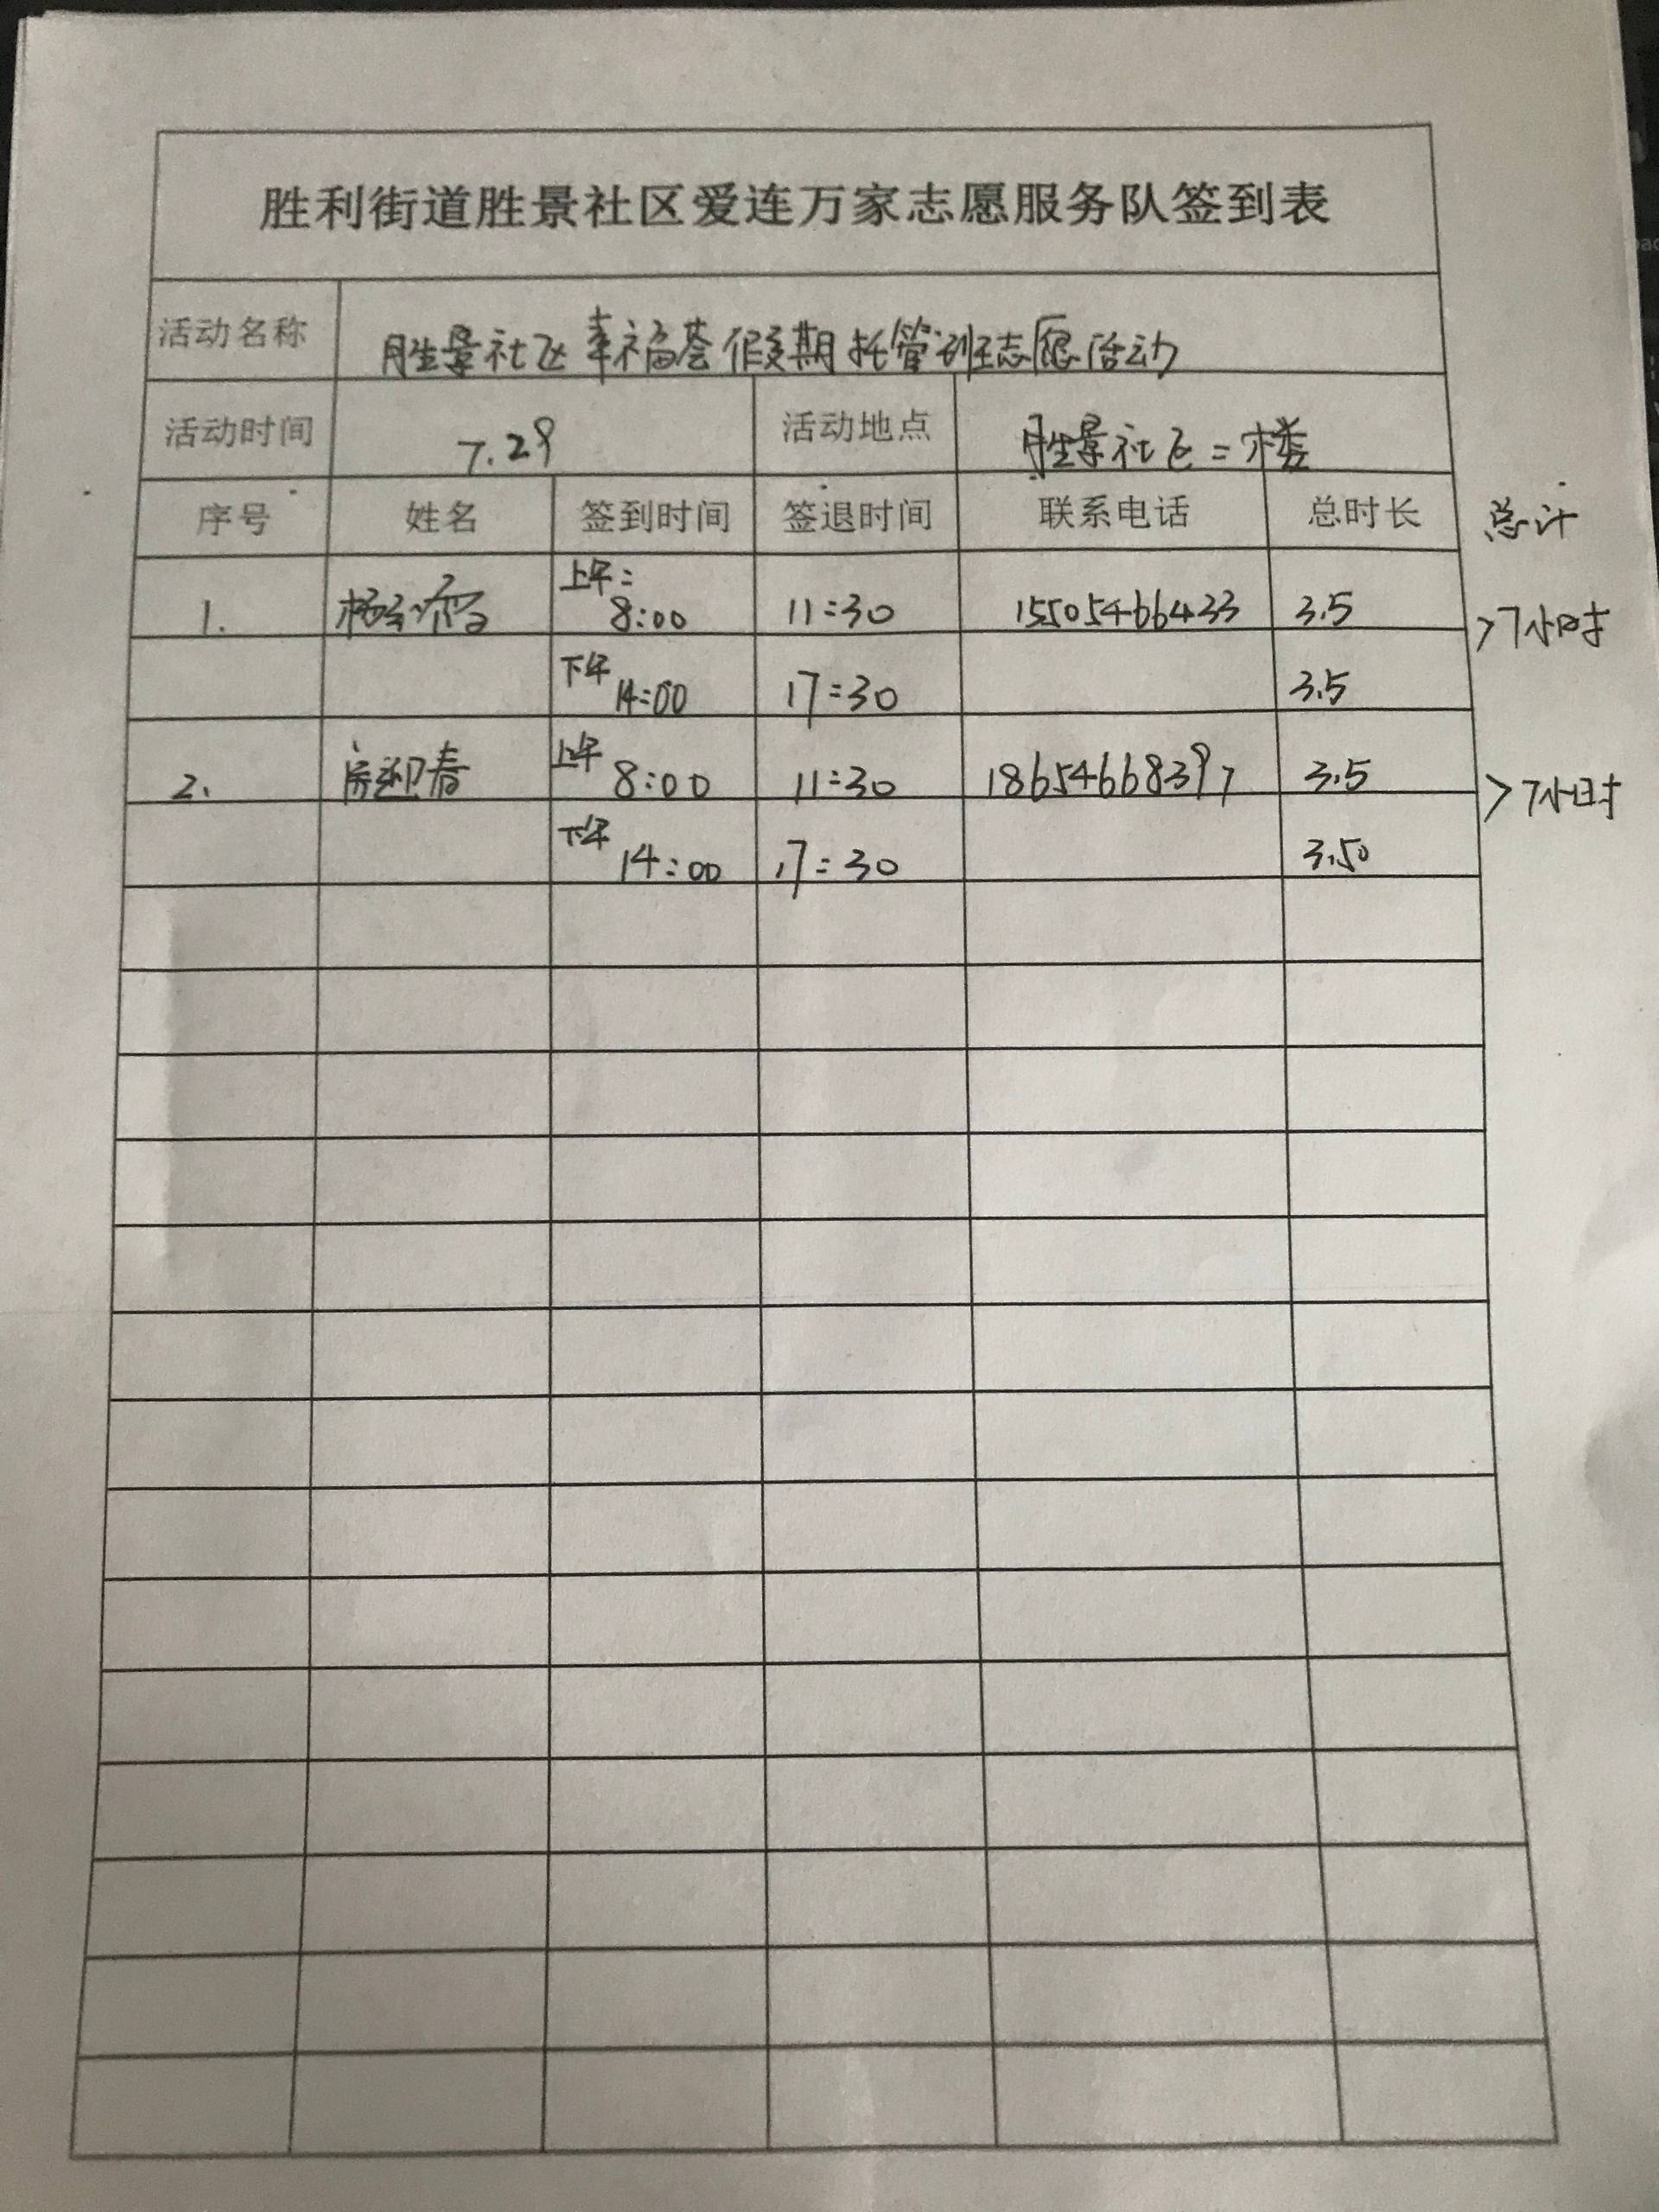 胜利街道胜景社区爱连万家志愿服务队签到表
活动名称 胜景社区幸福荟假期托管班志愿活动
活动时间 7.29 活动地点 胜景社区二楼
序号 姓名 签到时间 签退时间 联系电话 总时长 总计
1. 上午: 8:00 11:30 15505466433 3.5 >7小时
下午 14:00 17:30 3.5
2. 房迎春 上午 8:00 11:30 18654668397 3.5 >7小时
下午 14:00 17:30 3.50